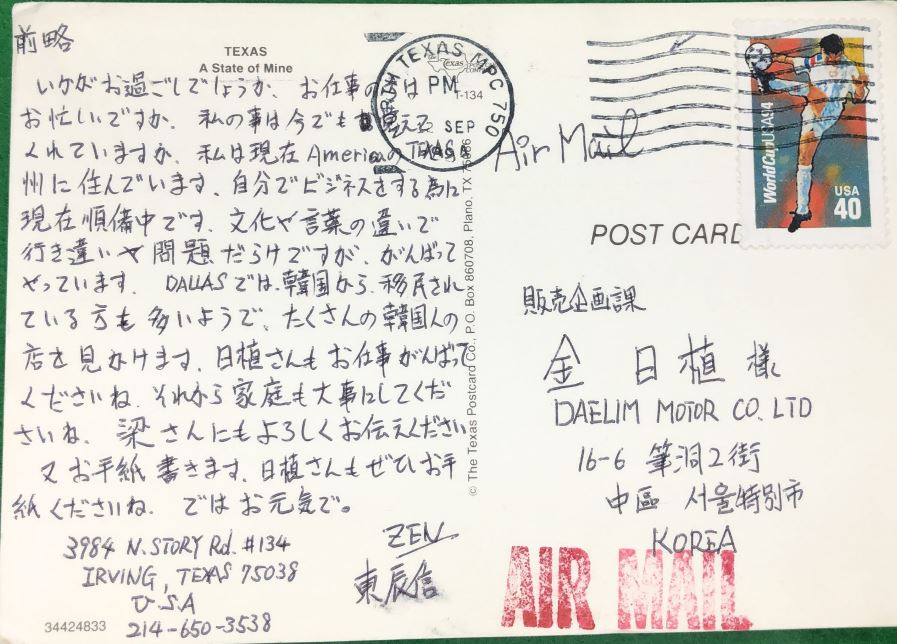 前略
TEXAS
A State of Mine
いかがお過ごしでしょうか、お仕事の方は
お忙しいですか、私の事は今でもお覚えて
くれていますか、私は現在AmericaのTEXAS
州に住んでいます、自分でビジネスをする為に
現在順備中です、文化や言葉の違いで
行き違いや問題だらけですが、がんばって
やっています、DALLASでは、韓国から、移民され
ている方も多いようで、たくさんの韓国人の
店を見かけます、日植さんもお仕事がんばって
くださいね、それから家庭も大事にしてくだ
さいね、梁さんにもよろしくお伝えください
又お手紙書きます、日植さんもぜひお手
紙くださいね、ではお元気で。
3984 N.STORY Rd. #134
IRVING, TEXAS 75038
U.S.A
214-650-3538
ZEN
東辰信
34424833
© The Texas Postcard Co., P.O. Box 860708, Plano, TX 75086
T-134
NORTH TEXAS MPC 750
PM
SEP
Air Mail
WorldCupUSA94
USA
40
POST CARD
販売企画課
金 日植 様
DAELIM MOTOR CO. LTD
16-6 筆洞2街
中區 서울特別市
KOREA
AIR MAIL